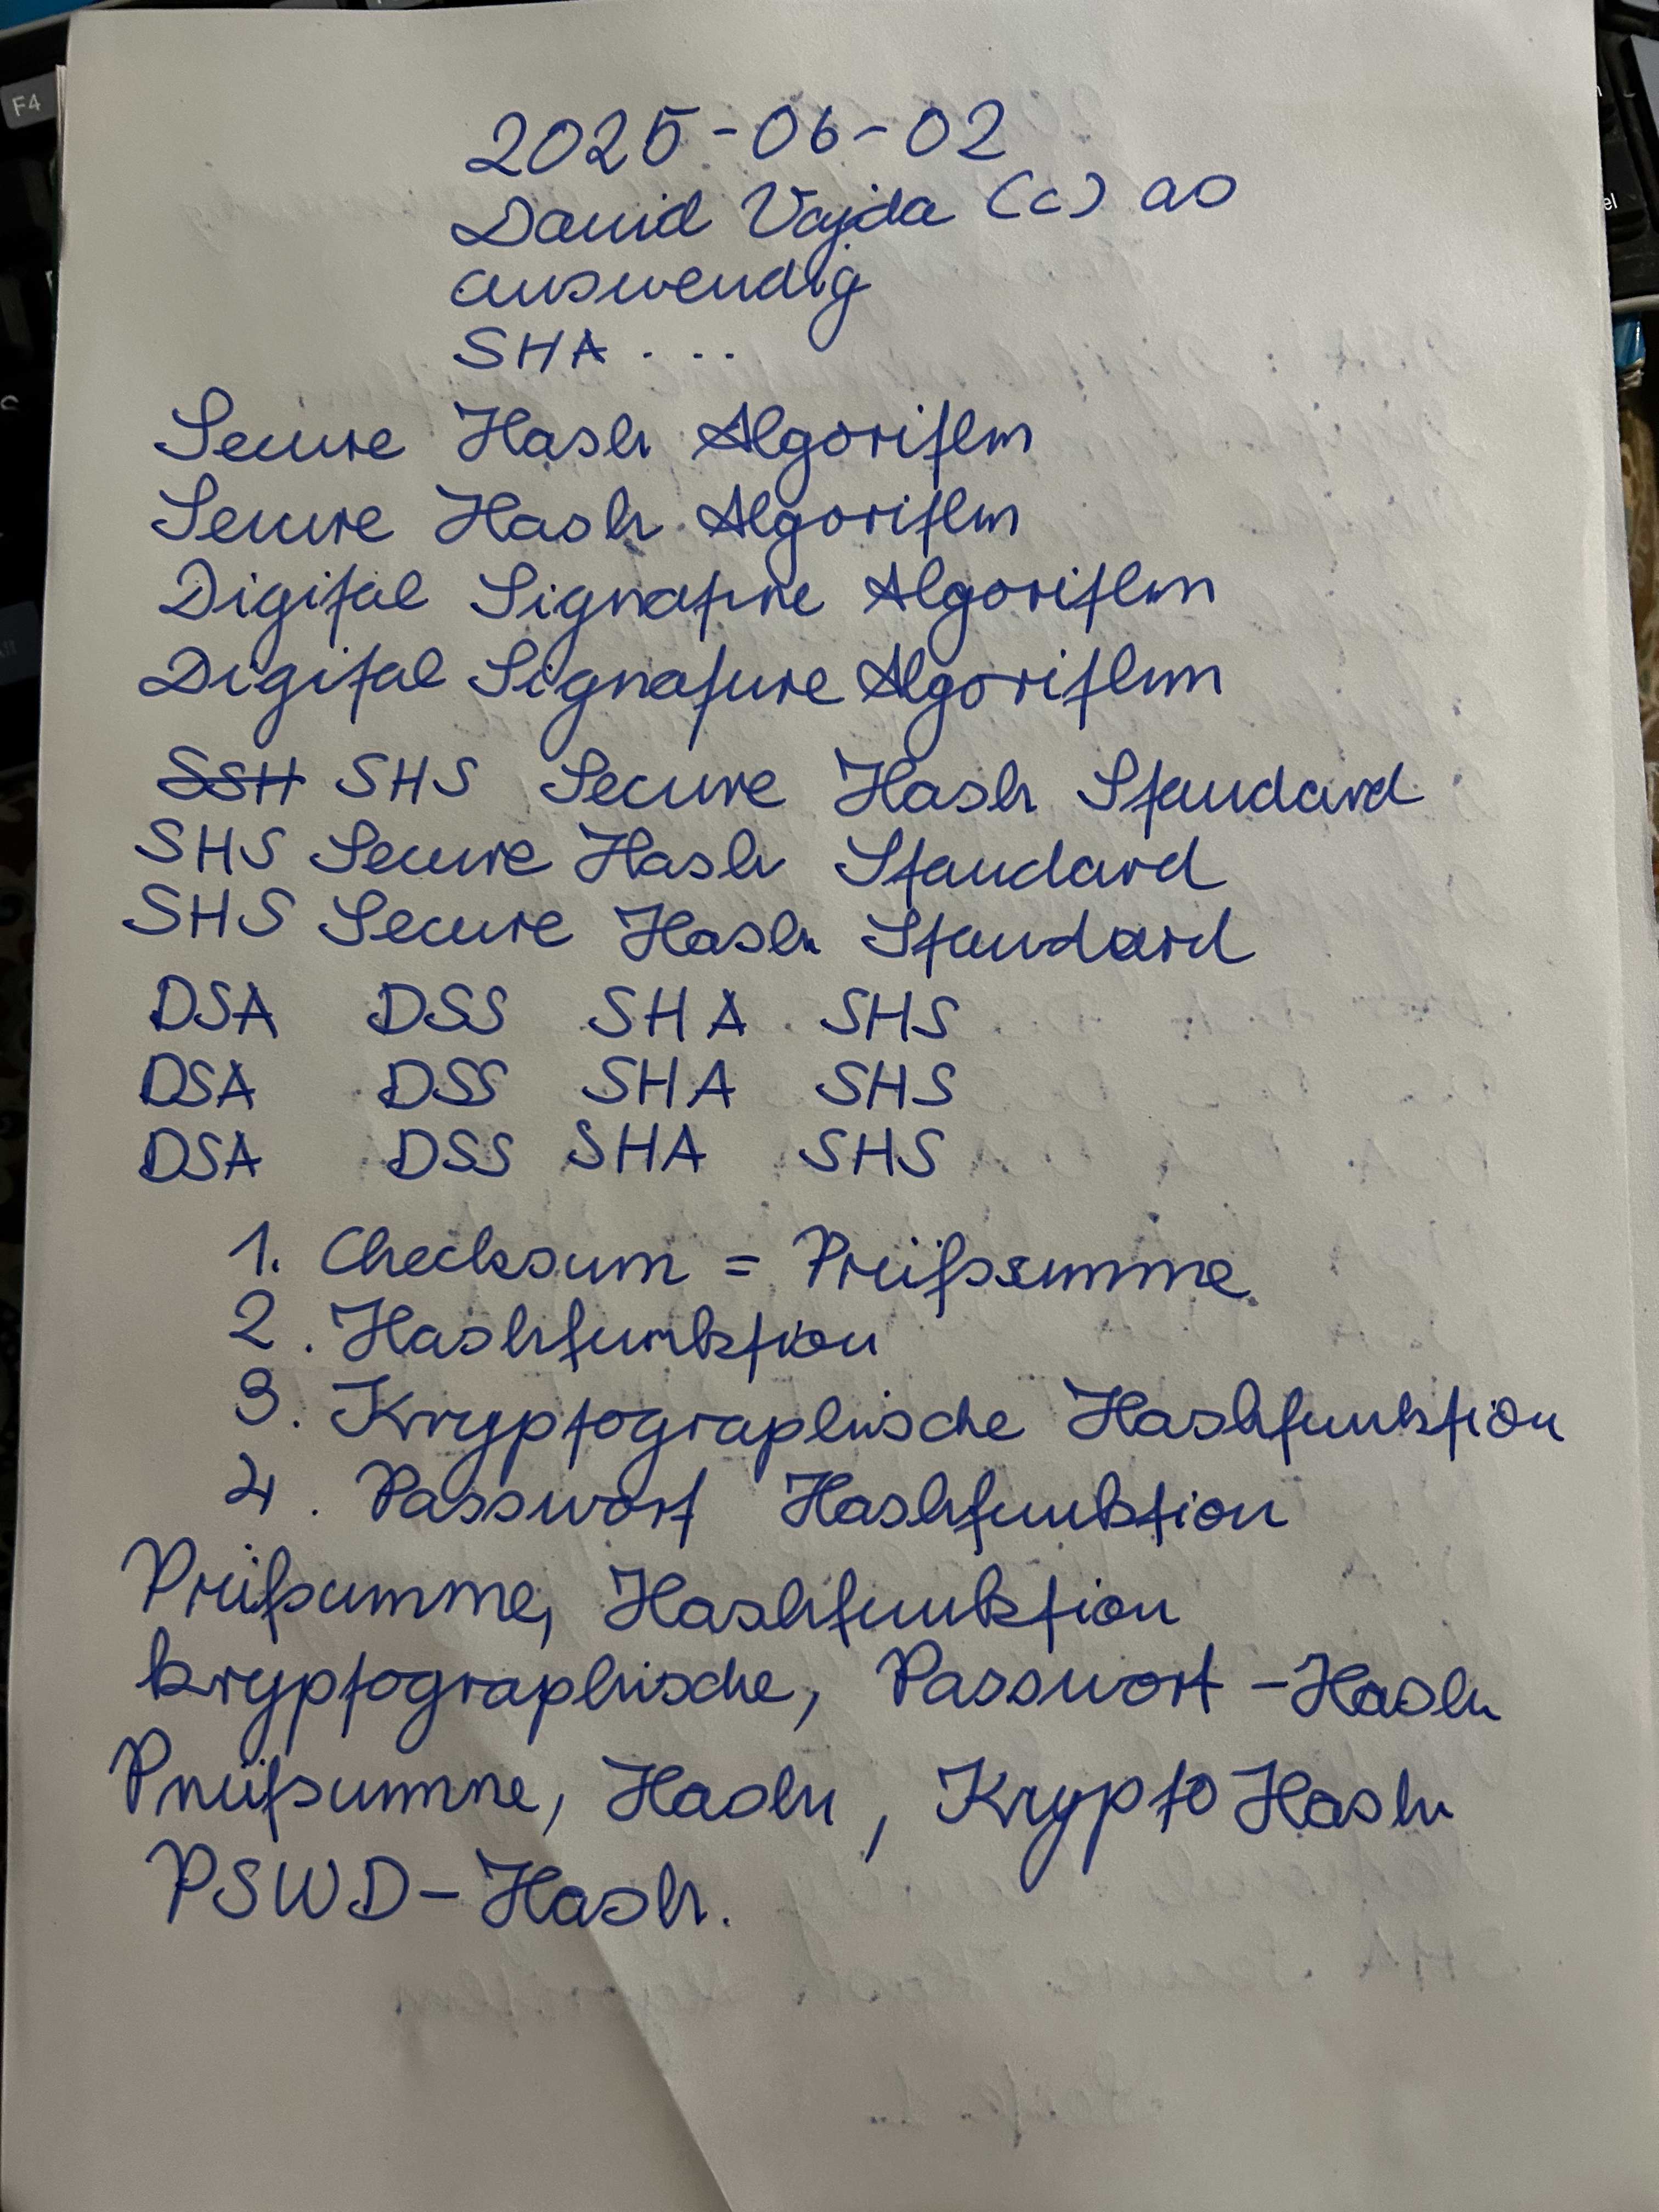 2025-06-02
David Vajda (c) ao
auswendig
SHA ....
Secure Hash Algorithm
Secure Hash Algorithm
Digital Signature Algorithm
Digital Signature Algorithm
SSH SHS Secure Hash Standard
SHS Secure Hash Standard
SHS Secure Hash Standard
DSA DSS SHA SHS
DSA DSS SHA SHS
DSA DSS SHA SHS
1. Checksum = Prüfssumme
2. Hashfunktion
3. Kryptographische Hashfunktion
4. Passwort Hashfunktion
Prüfsumme, Hashfunktion
kryptographische, Passwort-Hash
Prüfsumme, Hash, Krypto Hash
PSWD-Hash.
F4